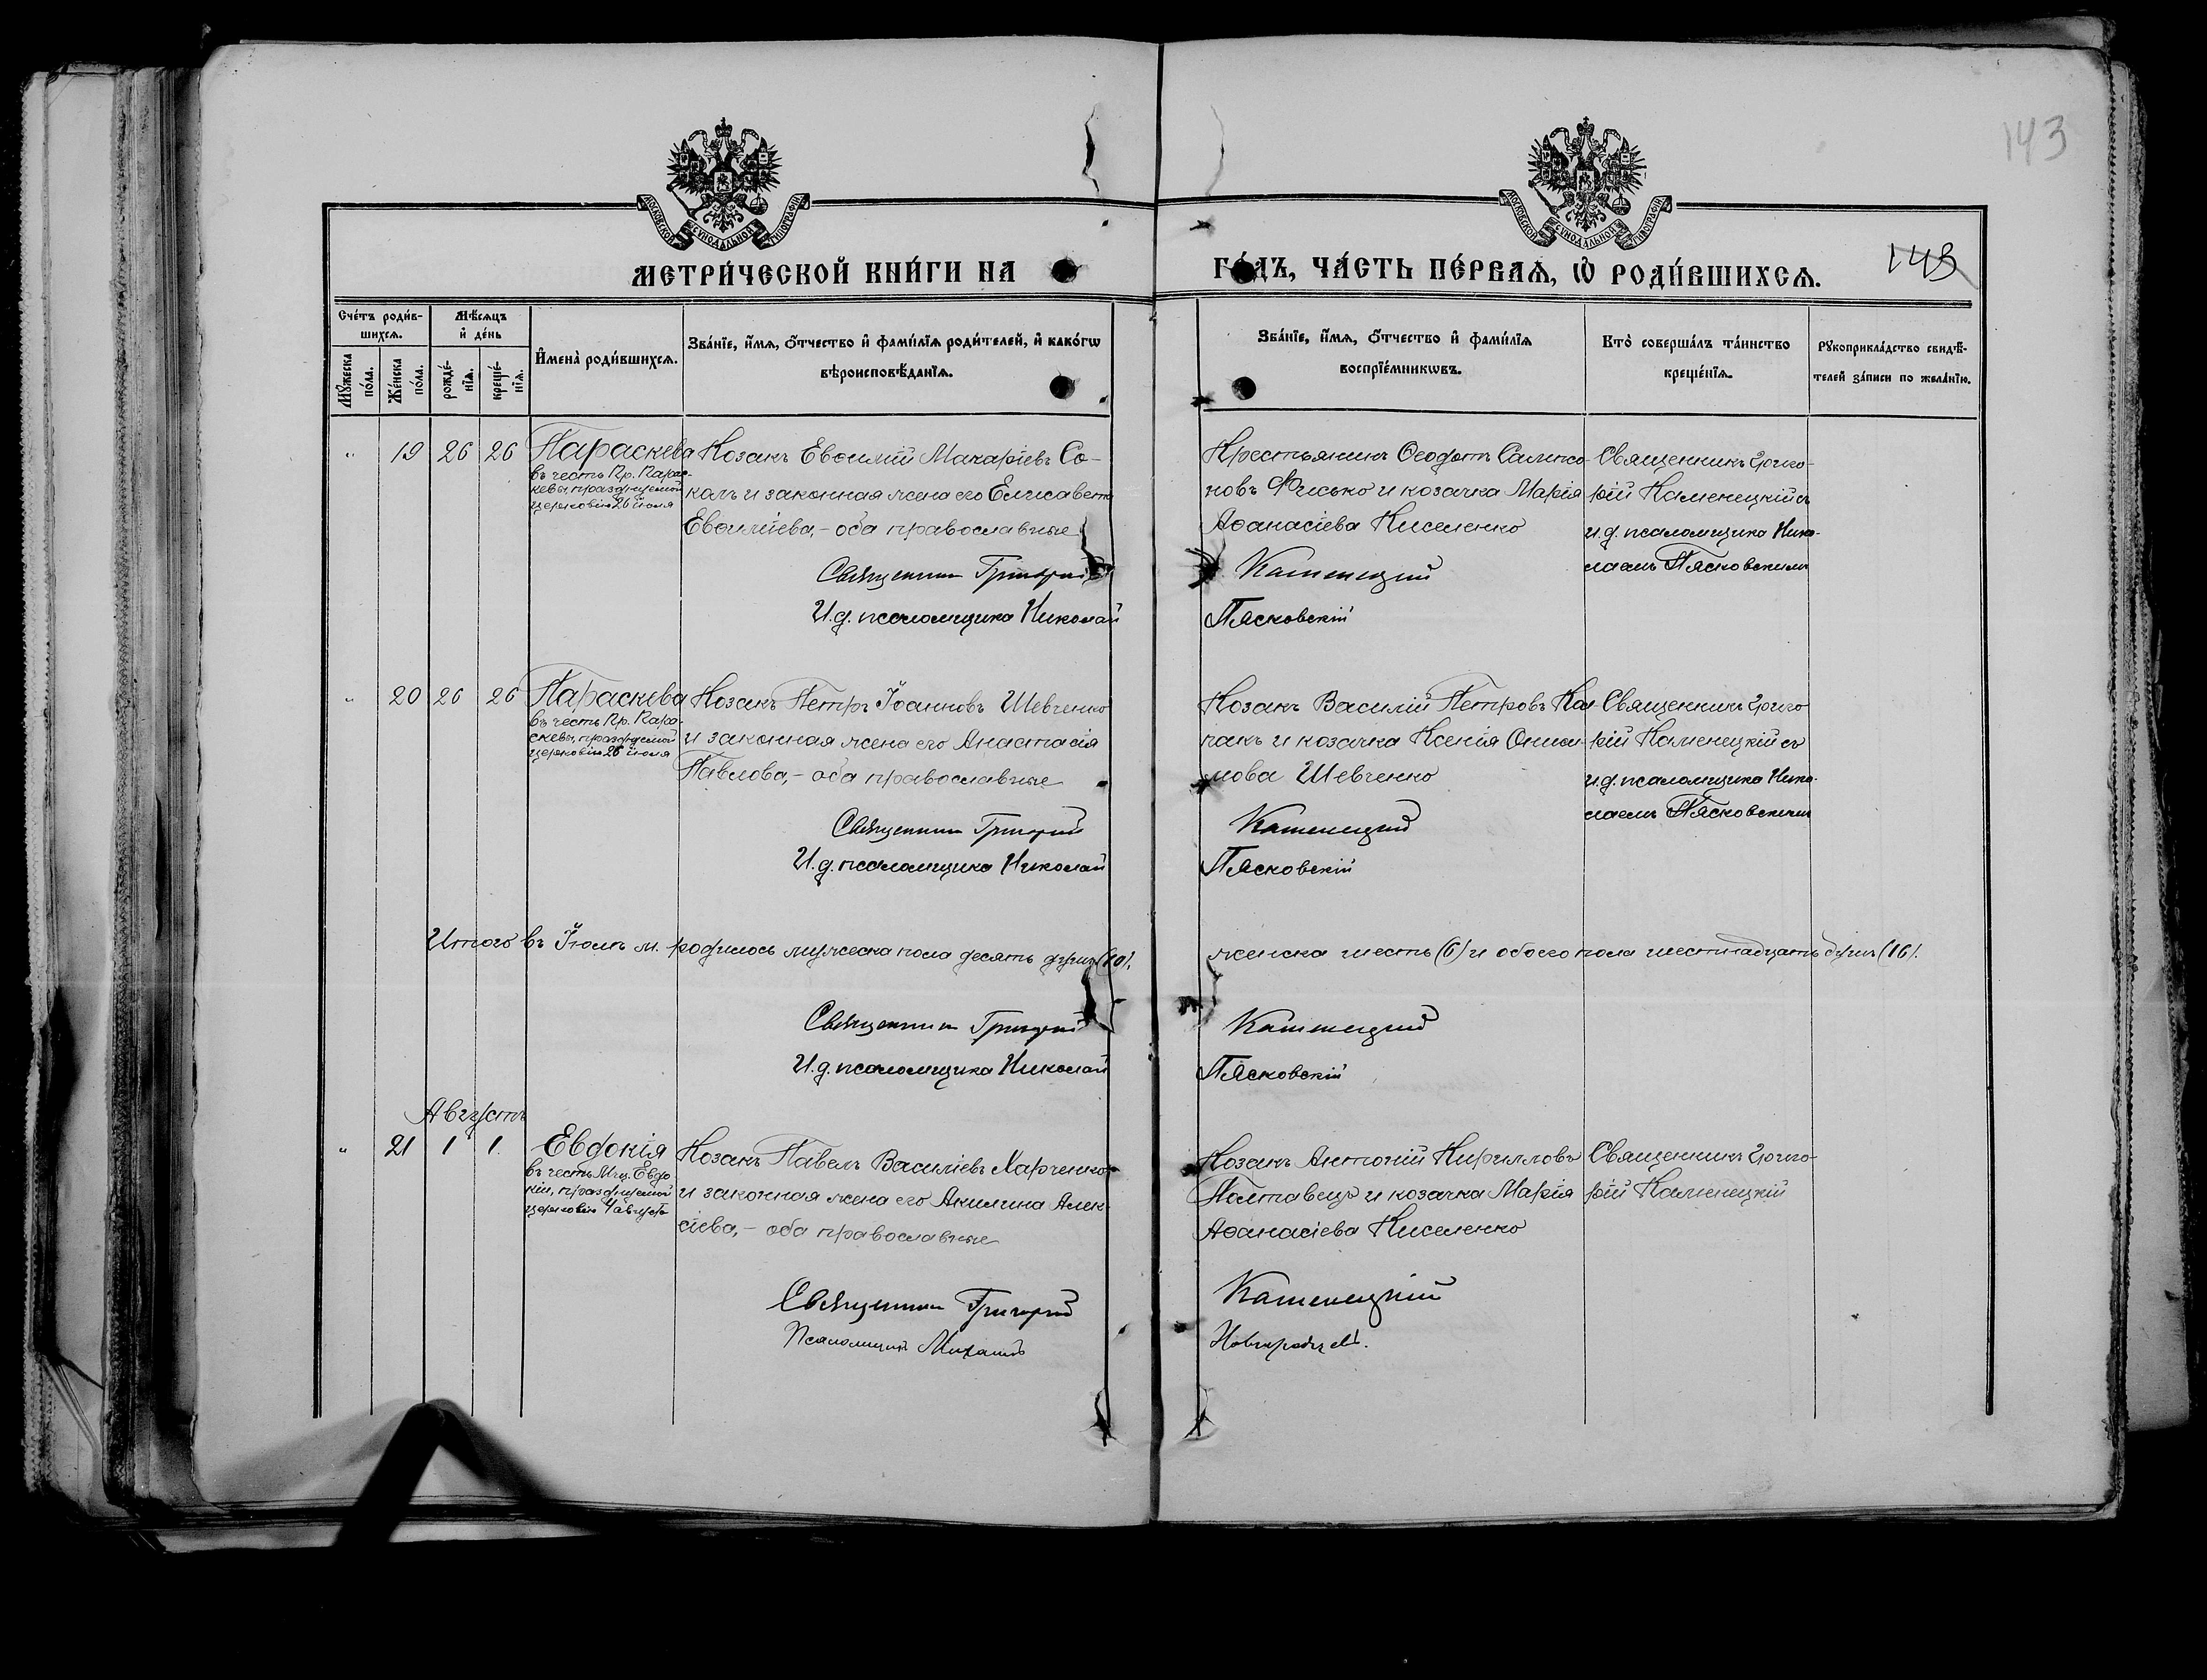 143
МОСКОВСКОЙ СѴНОДАЛЬНОЙ ТИПОГРАФІИ
МОСКОВСКОЙ СѴНОДАЛЬНОЙ ТИПОГРАФІИ
МЕТРИ́ЧЕСКОЙ КНИ́ГИ НА
ГО́ДЪ, ЧА́СТЬ ПЕ́РВАѦ, Ѡ҆ РОДИ́ВШИХСѦ.
143
Сче́тъ роди́в-
шихсѧ.
Мꙋ́жеска
по́ла.
Же́нска
по́ла.
Мѣ́сѧцъ
и҆ де́нь
рожде́-
нїѧ.
креще́-
нїѧ.
И҆мена̀ роди́вшихсѧ.
Зва́нїе, и҆́мѧ, ѻ҆́тчество и҆ фами́лїѧ роди́телей, и҆ како́гѡ
вѣроисповѣ́данїѧ.
Зва́нїе, и҆́мѧ, ѻ҆́тчество и҆ фами́лїѧ
воспрїе́мникѡвъ.
Кто̀ соверша́лъ та́инство
креще́нїѧ.
Рꙋкоприкла́дство свидѣ́-
телей за́писи по жела́нїю.
" 19 26 26
Параскева
въ честь Пр. Парас-
кевы, празднуемой
церковію 26 іюля
Козакъ Евѳимій Макаріевъ Со-
калъ и законная жена его Елисавета
Евѳиміева, – оба православные
Священникъ Григорій
И.д. псаломщика Николай
Крестьянинъ Ѳеодотъ Сампсо-
новъ Фисько и козачка Марія
Аѳанасіева Киселенко
Каменецкій
Пясковскій
Священникъ Григо-
рій Каменецкій съ
и.д. псаломщика Нико-
лаемъ Пясковскимъ
" 20 26 26
Параскева
въ честь Пр. Пара-
скевы, празднуемой
церковію 26 іюля
Козакъ Петръ Іоанновъ Шевченко
и законная жена его Анастасія
Павлова, – оба православные
Священникъ Григорій
И.д. псаломщика Николай
Козакъ Василій Петровъ
и козачка Ксенія
Шевченко
Каменецкій
Пясковскій
Священникъ Григо
рій Каменецкій съ
и.д. псаломщика Нико-
лаемъ Пясковскимъ
Итого въ Іюлѣ м. родилось мужеска пола десять душъ (10),
женска шесть (6) и обоего пола шестнадцать душъ (16).
Священникъ Григорій
И.д. псаломщика Николай
Каменецкій
Пясковскій
Августъ
" 21 1 1.
Евдокія
въ честь Мц. Евдо
кіи, празднуемой
церковію 4 августа
Козакъ Павелъ Василіевъ Харченко
и законная жена его Акилина Алек-
сіева, – оба православные
Священникъ Григорій
Псаломщикъ Михаилъ
Козакъ Антоній Кирилловъ
Полтавецъ и козачка Марія
Аѳанасіева Киселенко
Каменецкій
Священникъ Григо-
рій Каменецкій